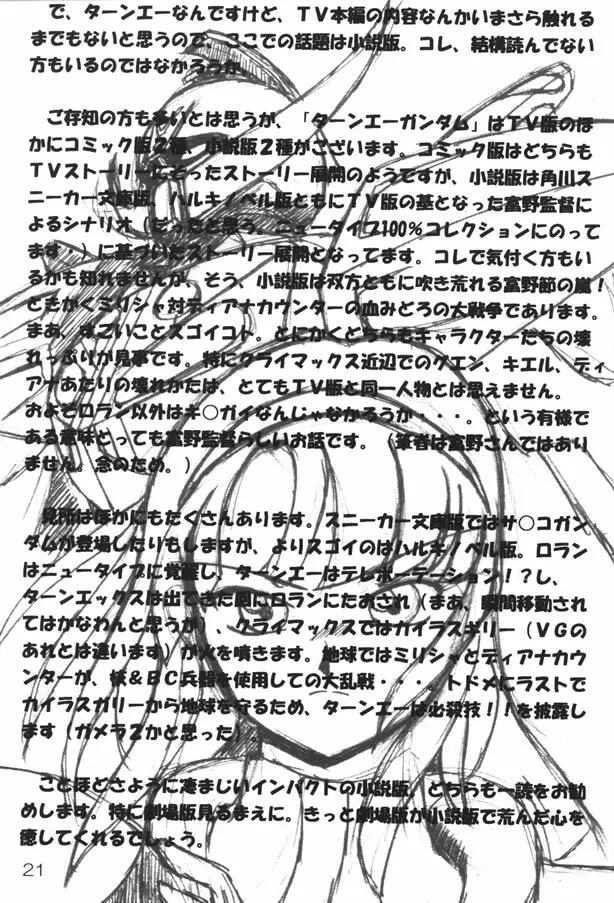 で、ターンエーなんですけど、ＴＶ本編の内容なんかいまさら触れる
までもないと思うので、ここでの話題は小説版。コレ、結構読んでない
方もいるのではなかろうか。
ご存知の方も多いとは思うが、「ターンエーガンダム」はＴＶ版のほ
かにコミック版２種、小説版２種がございます。コミック版はどちらも
ＴＶストーリーにそったストーリー展開のようですが、小説版は角川ス
ニーカー文庫版、ハルキノベル版ともにＴＶ版の基となった富野監督に
よるシナリオ（だったと思う。ニュータイプ100％コレクションにのって
ます。）に基づいたストーリー展開となってます。コレで気付く方もい
るかも知れませんが、そう、小説版は双方ともに吹き荒れる富野節の嵐！
ときかくミリシャ対ディアナカウンターの血みどろの大戦争であります。
まあ、すごいことスゴイコト。とにかくどちらもキャラクターたちの壊
れっぷりが見事です。特にクライマックス近辺でのグエン、キエル、ディ
アナあたりの壊れかたは、とてもＴＶ版と同一人物とは思えません。
およそロラン以外はキ○ガイなんじゃなかろうか・・・。という有様で
ある意味とっても富野監督らしいお話です。（筆者は富野さんではあり
ません。念のため。）
見所はほかにもたくさんあります。スニーカー文庫版ではサ○コガン
ダムが登場したりもしますが、よりスゴイのはハルキノベル版。ロラン
はニュータイプに覚醒し、ターンエーはテレポーテーション！？し、
ターンエックスは出てきた割にロランにたおされ（まあ、瞬間移動され
てはかなわんと思うが）、クライマックスではカイラスギリー（ＶＧの
あれとは違います）が火を噴きます。地球ではミリシャとディアナカウ
ンターが、核＆ＢＣ兵器を使用しての大乱戦・・・。トドメにラストで
カイラスガリーから地球を守るため、ターンエーは必殺技！！を披露し
ます（ガメラ２かと思った）。
ことほどさように凄まじいインパクトの小説版。どちらも一読をお勧
めします。特に劇場版見るまえに。きっと劇場版が小説版で荒んだ心を
癒してくれるでしょう。
21